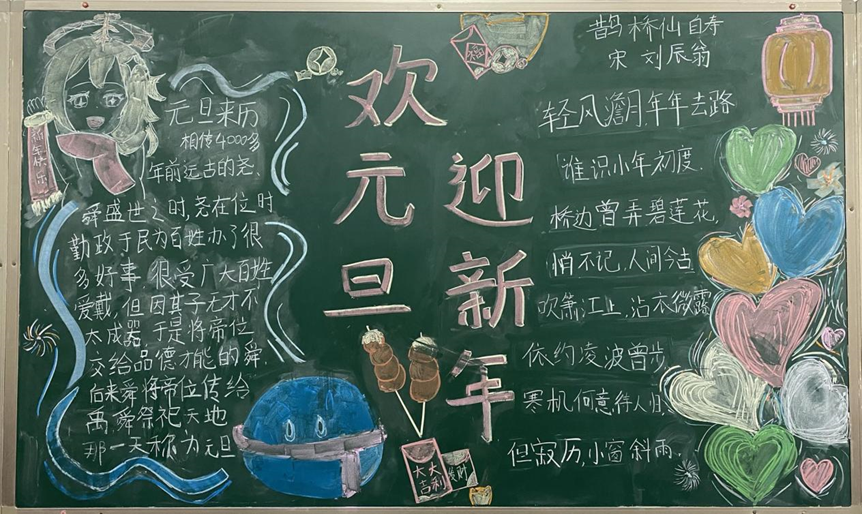 新年快乐
元旦来历
相传4000多
年前远古的尧、
舜盛世之时,尧在位时
勤政于民为百姓办了很
多好事,很受广大百姓
爱戴,但因其子无才不
太成器,于是将帝位
交给品德才能的舜.
后来舜将帝位传给
禹,舜祭祀天地
那一天称为元旦
欢元旦
迎新年
福
大大
吉利
发财
鹊桥仙 自寿
宋 刘辰翁
轻风澹月年年去路
谁识小年初度.
桥边曾弄碧莲花,
悄不记,人间今古
吹箫江上,沾衣微露
依约凌波曾步
寒机何意待人归,
但寂历,小窗斜雨.